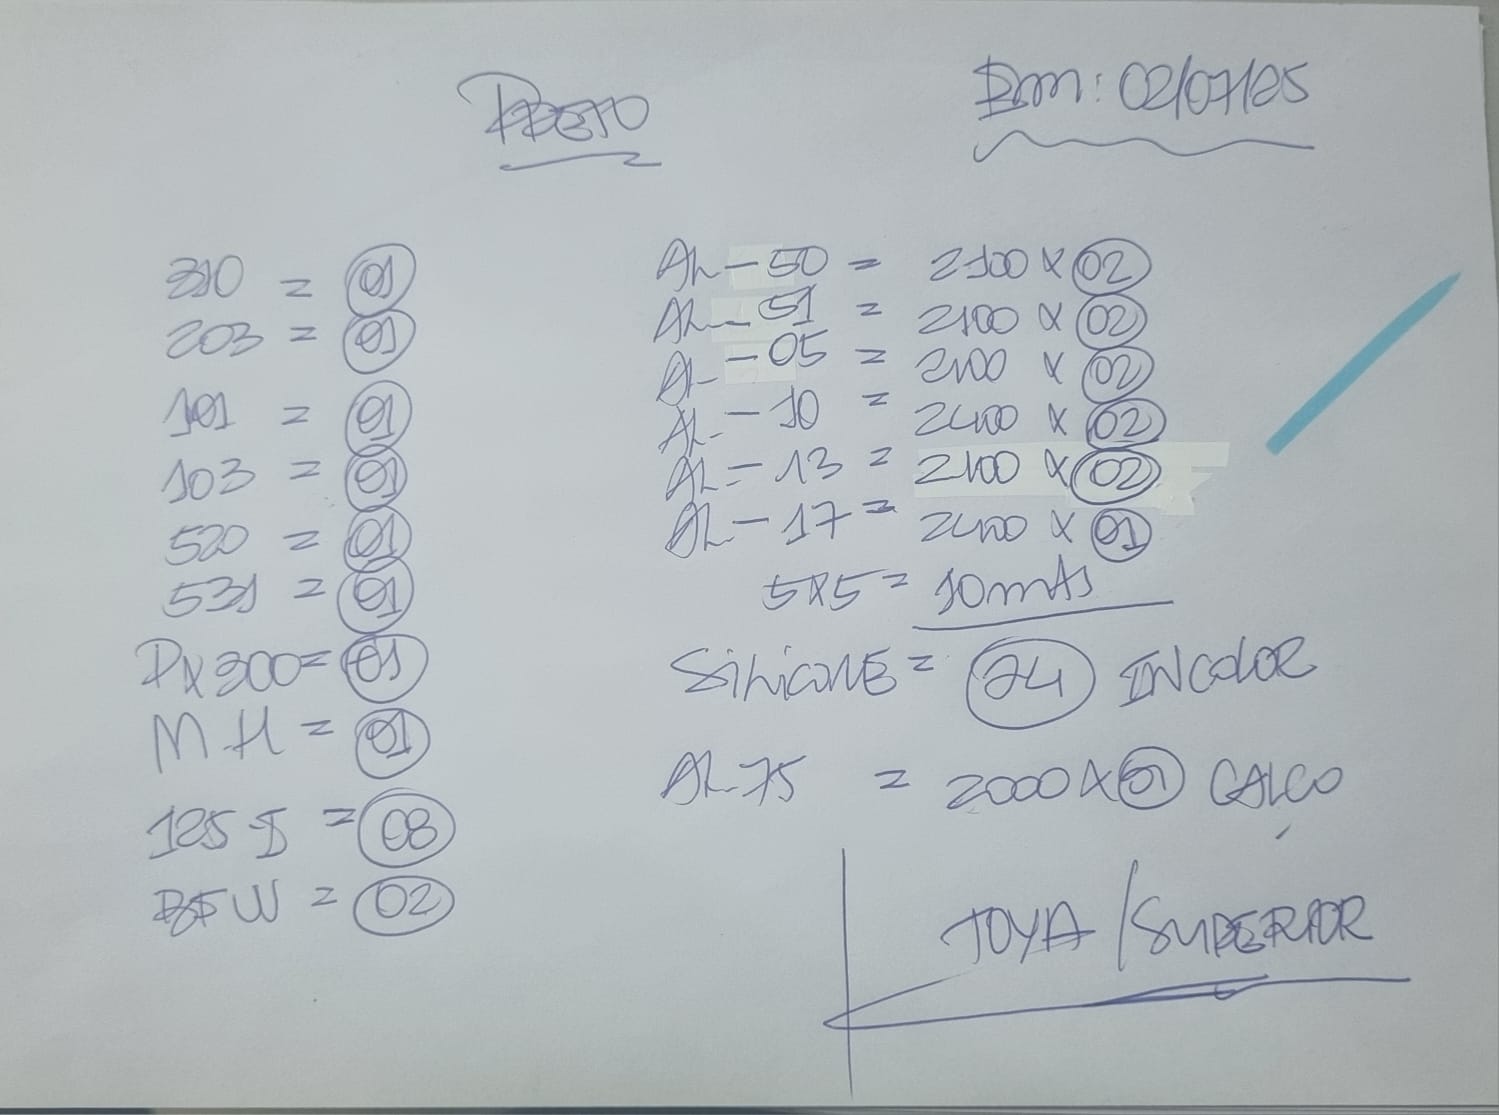 PRETO
Bom: 02/07/25
310 = 01
203 = 01
101 = 01
103 = 01
520 = 01
531 = 01
PX300 = 01
M.H = 01
125 I = 08
BFW = 02
AL-50 = 2100 X 02
AL-51 = 2100 X 02
AL-05 = 2100 X 02
AL-10 = 2400 X 02
AL-13 = 2100 X 02
AL-17 = 2400 X 01
5X5 = 10mts
SiLicONE = 24 INCOLOR
AL-75 = 2000 X 01 CALÇO
JOYA / SUPERIOR